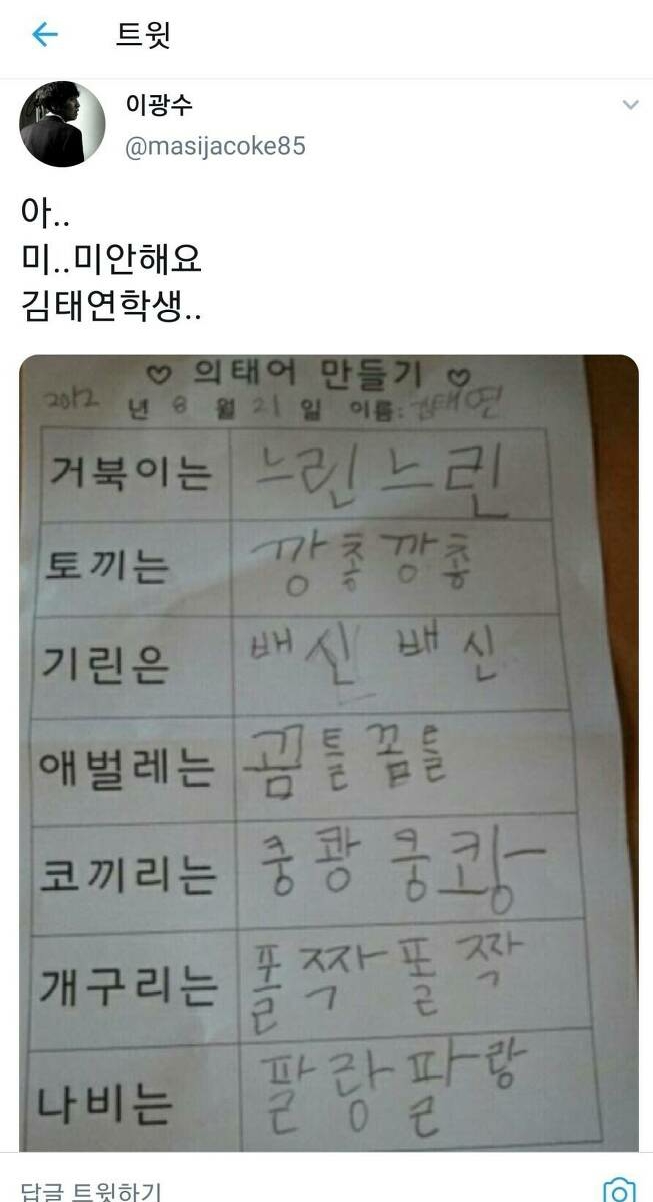 트윗
이광수
@masijacoke85
아..
미..미안해요
김태연학생..
♡ 의태어 만들기 ♡
2012 년 8 월 21 일 이름: 김태연
거북이는 느린느린
토끼는 깡총깡총
기린은 배신 배신
애벌레는 꿈틀꿈틀
코끼리는 쿵쾅쿵쾅
개구리는 폴짝폴짝
나비는 팔랑팔랑
답글 트윗하기